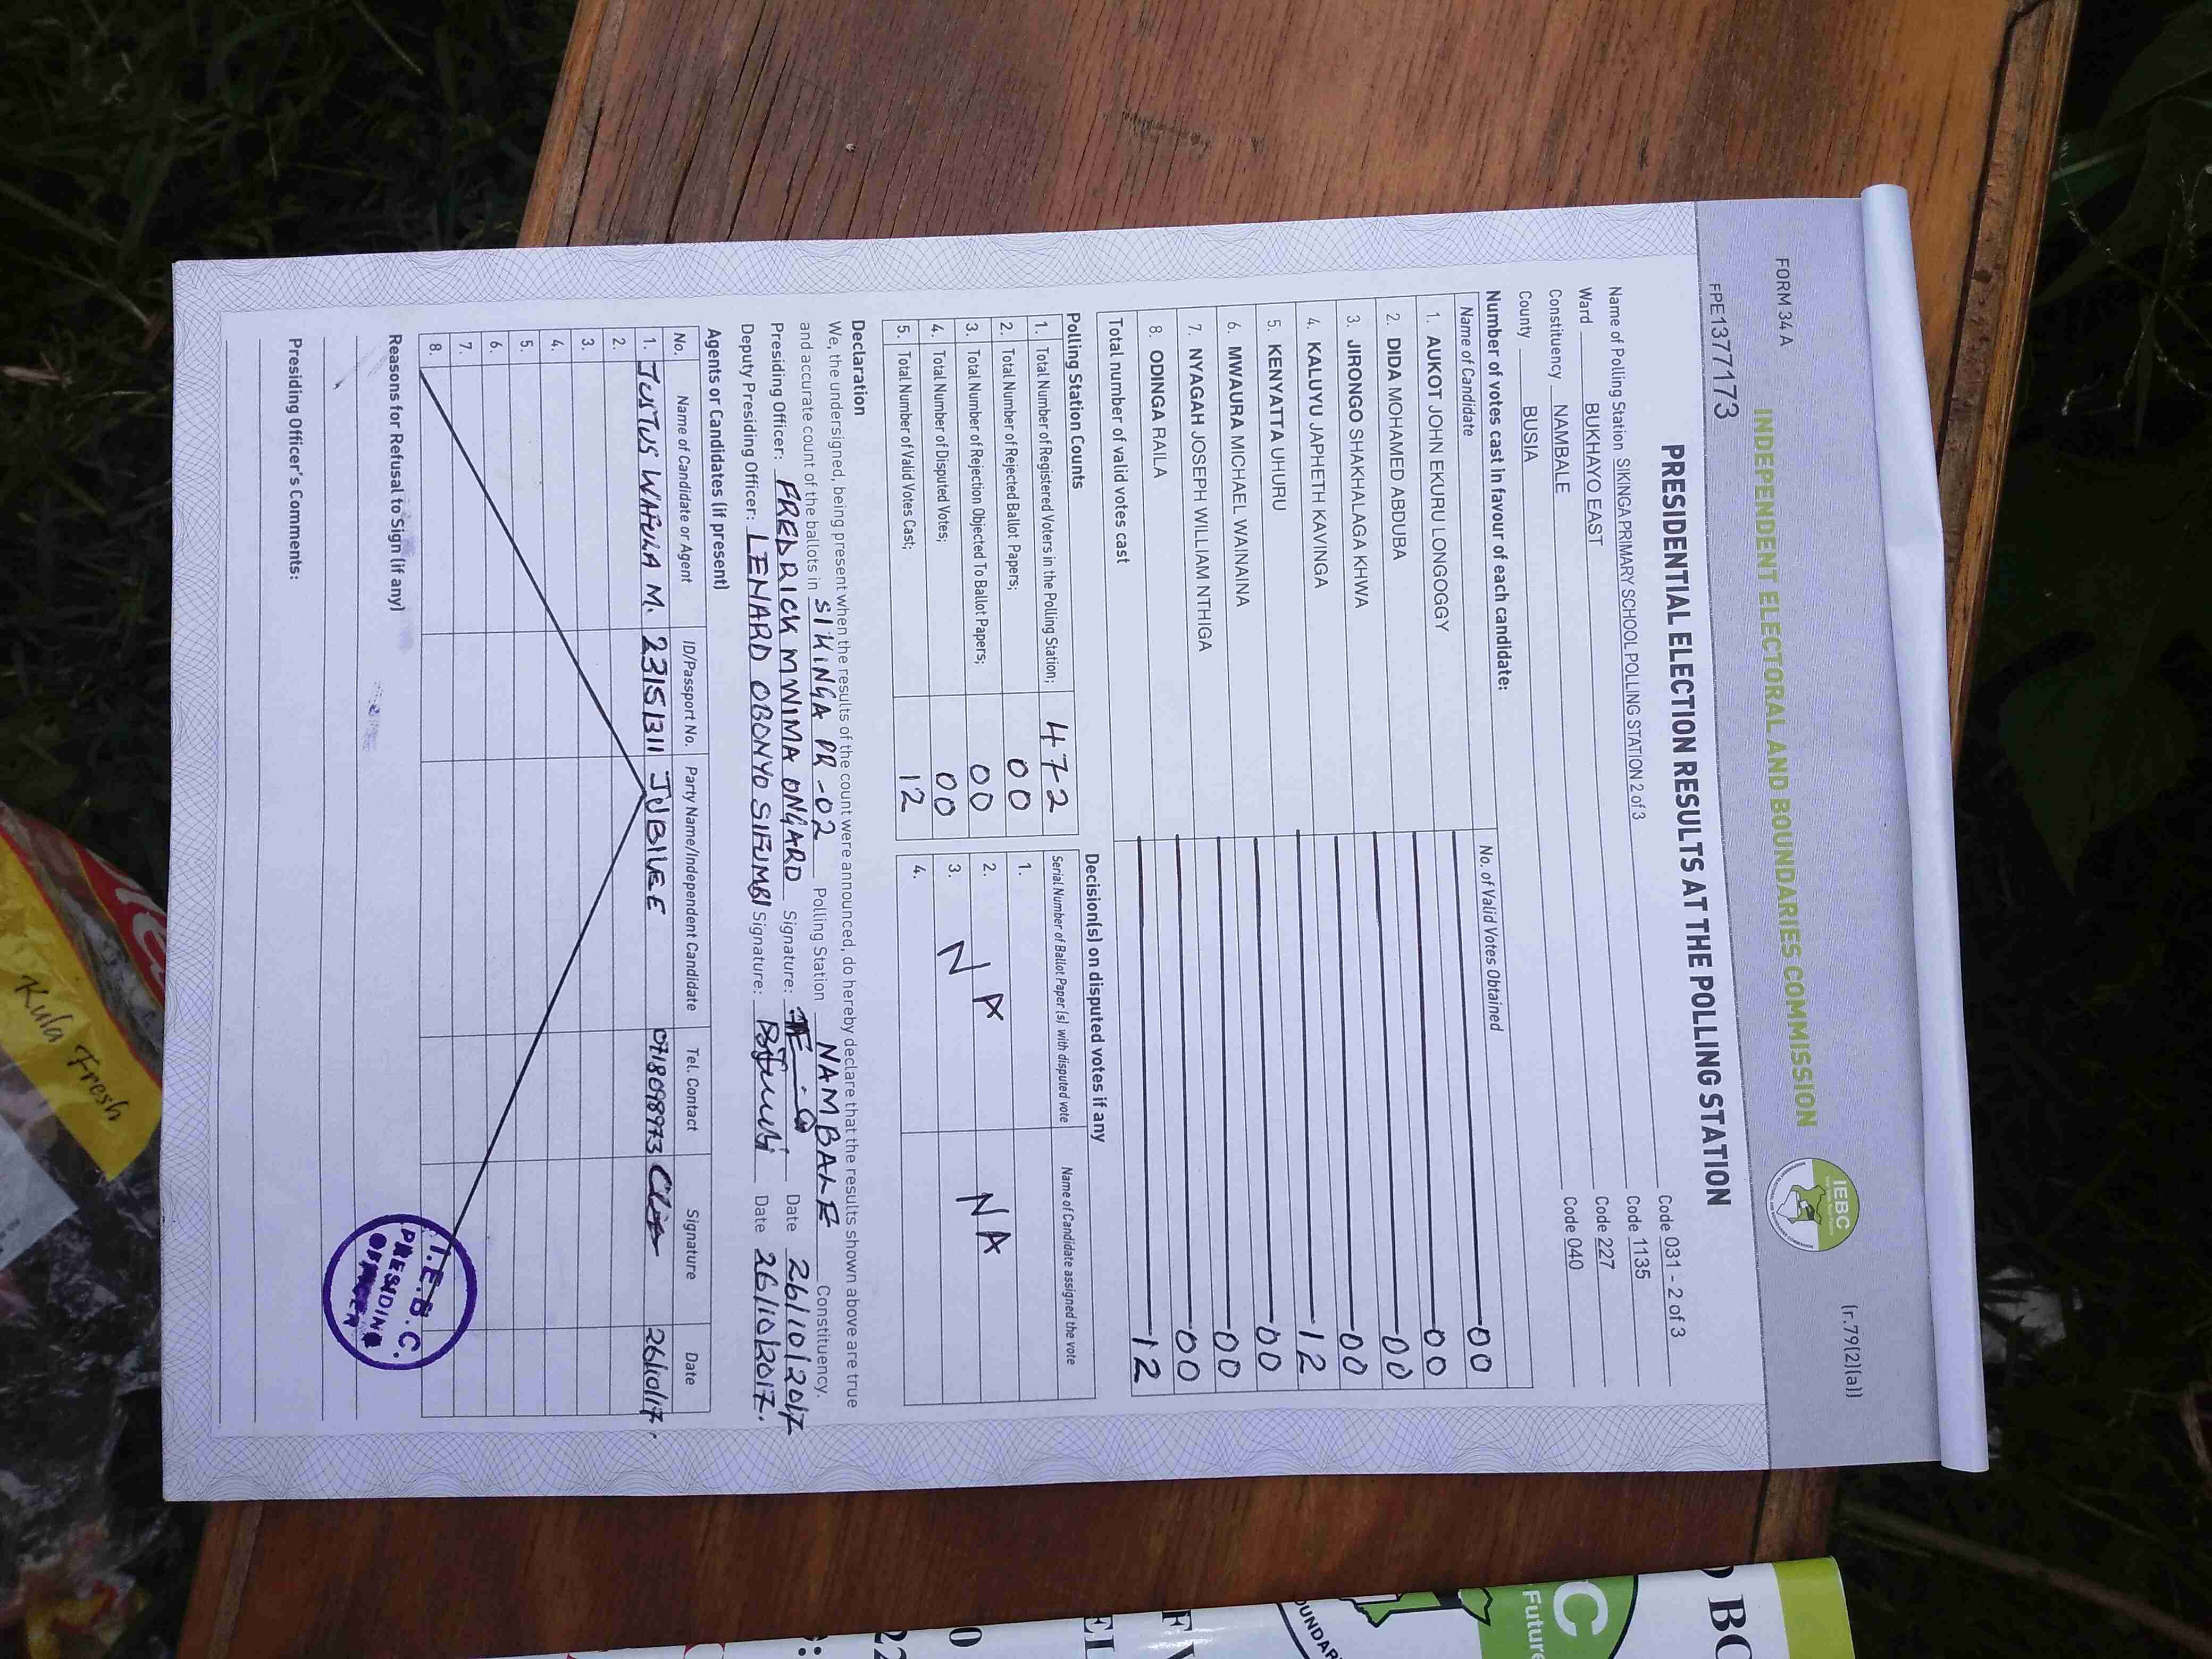 FORM 34 A
(r.79(2)(a))
INDEPENDENT ELECTORAL AND BOUNDARIES COMMISSION
IEBC
FPE1377173
PRESIDENTIAL ELECTION RESULTS AT THE POLLING STATION
Name of Polling Station SIKINGA PRIMARY SCHOOL POLLING STATION 2 of 3 Code 031 - 2 of 3
Ward BUKHAYO EAST Code 1135
Constituency NAMBALE Code 227
County BUSIA Code 040
Number of votes cast in favour of each candidate:
Name of Candidate No. of Valid Votes Obtained
1. AUKOT JOHN EKURU LONGOGGY 00
2. DIDA MOHAMED ABDUBA 00
3. JIRONGO SHAKHALAGA KHWA 00
4. KALUYU JAPHETH KAVINGA 00
5. KENYATTA UHURU 12
6. MWAURA MICHAEL WAINAINA 00
7. NYAGAH JOSEPH WILLIAM NTHIGA 00
8. ODINGA RAILA 00
Total number of valid votes cast 12
Polling Station Counts
1. Total Number of Registered Voters in the Polling Station; 472
2. Total Number of Rejected Ballot Papers; 00
3. Total Number of Rejection Objected To Ballot Papers; 00
4. Total Number of Disputed Votes; 00
5. Total Number of Valid Votes Cast; 12
Decision(s) on disputed votes if any
Serial Number of Ballot Paper (s) with disputed vote Name of Candidate assigned the vote
1.
2.
3.
4.
N A
N A
Declaration
We, the undersigned, being present when the results of the count were announced, do hereby declare that the results shown above are true
and accurate count of the ballots in SIKINGA PR - 02 Polling Station NAMBALE Constituency.
Presiding Officer: FREDRICK MWIMA ONGARO Signature: Date 26/10/2017
Deputy Presiding Officer: LENARD OBONYO SIFUMBI Signature: Date 26/10/2017.
Agents or Candidates (if present)
No. Name of Candidate or Agent ID/Passport No. Party Name/Independent Candidate Tel. Contact Signature Date
1. JUSTUS WAFULA M. 23151311 JUBILEE 0718098973 26/10/17.
2.
3.
4.
5.
6.
7.
8.
I.E.B.C.
PRESIDING
OFFICER
Reasons for Refusal to Sign (if any)
Presiding Officer's Comments:
Kula Fresh
BO
C
Future